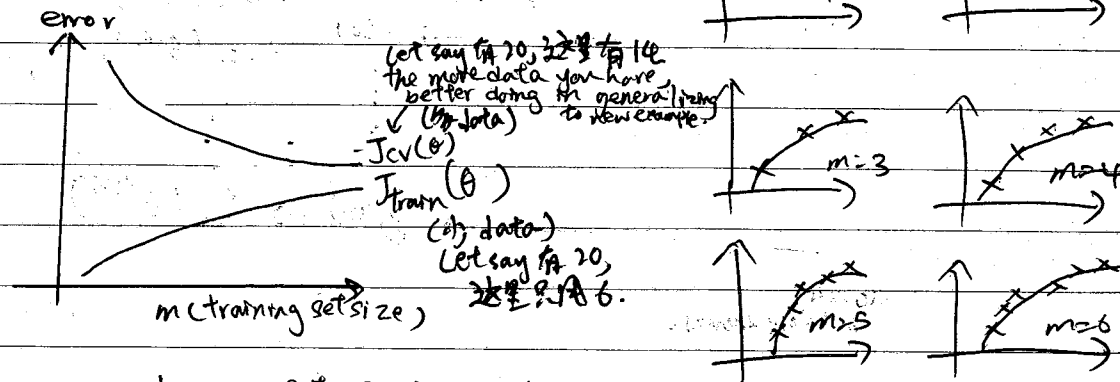 error
Let say 有 20, 这里有 14
the more data you have,
better doing in generalizing
to new example.
Jcv(θ)
Jtrain(θ)
Let say 有 20,
这里只用 6.
m (training set size)
m=3
m=4
m=5
m=6